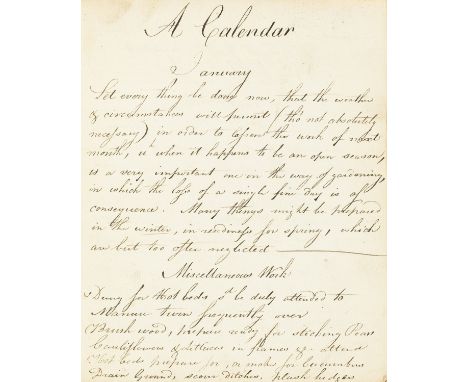 A Calendar
January
Let every thing be done now, that the weather
& circumstances will permit (tho' not absolutely
necessary) in order to lessen the work of next
month, wh when it happens to be an open season,
is a very important one in the way of gardening,
in which the loss of a single fine day is of
consequence. Many things might be prepared
in the winter, in readiness for spring, which
are but too often neglected
Miscellaneous Work
Dung for Hot beds, to be duly attended to
Manure turn frequently over
Brush wood, prepare ready for sticking Peas
Cauliflowers & Lettices in frames & attend
Hot beds prepare for, or make for Cucumbers
Drain Ground, scour ditches, plash hedges